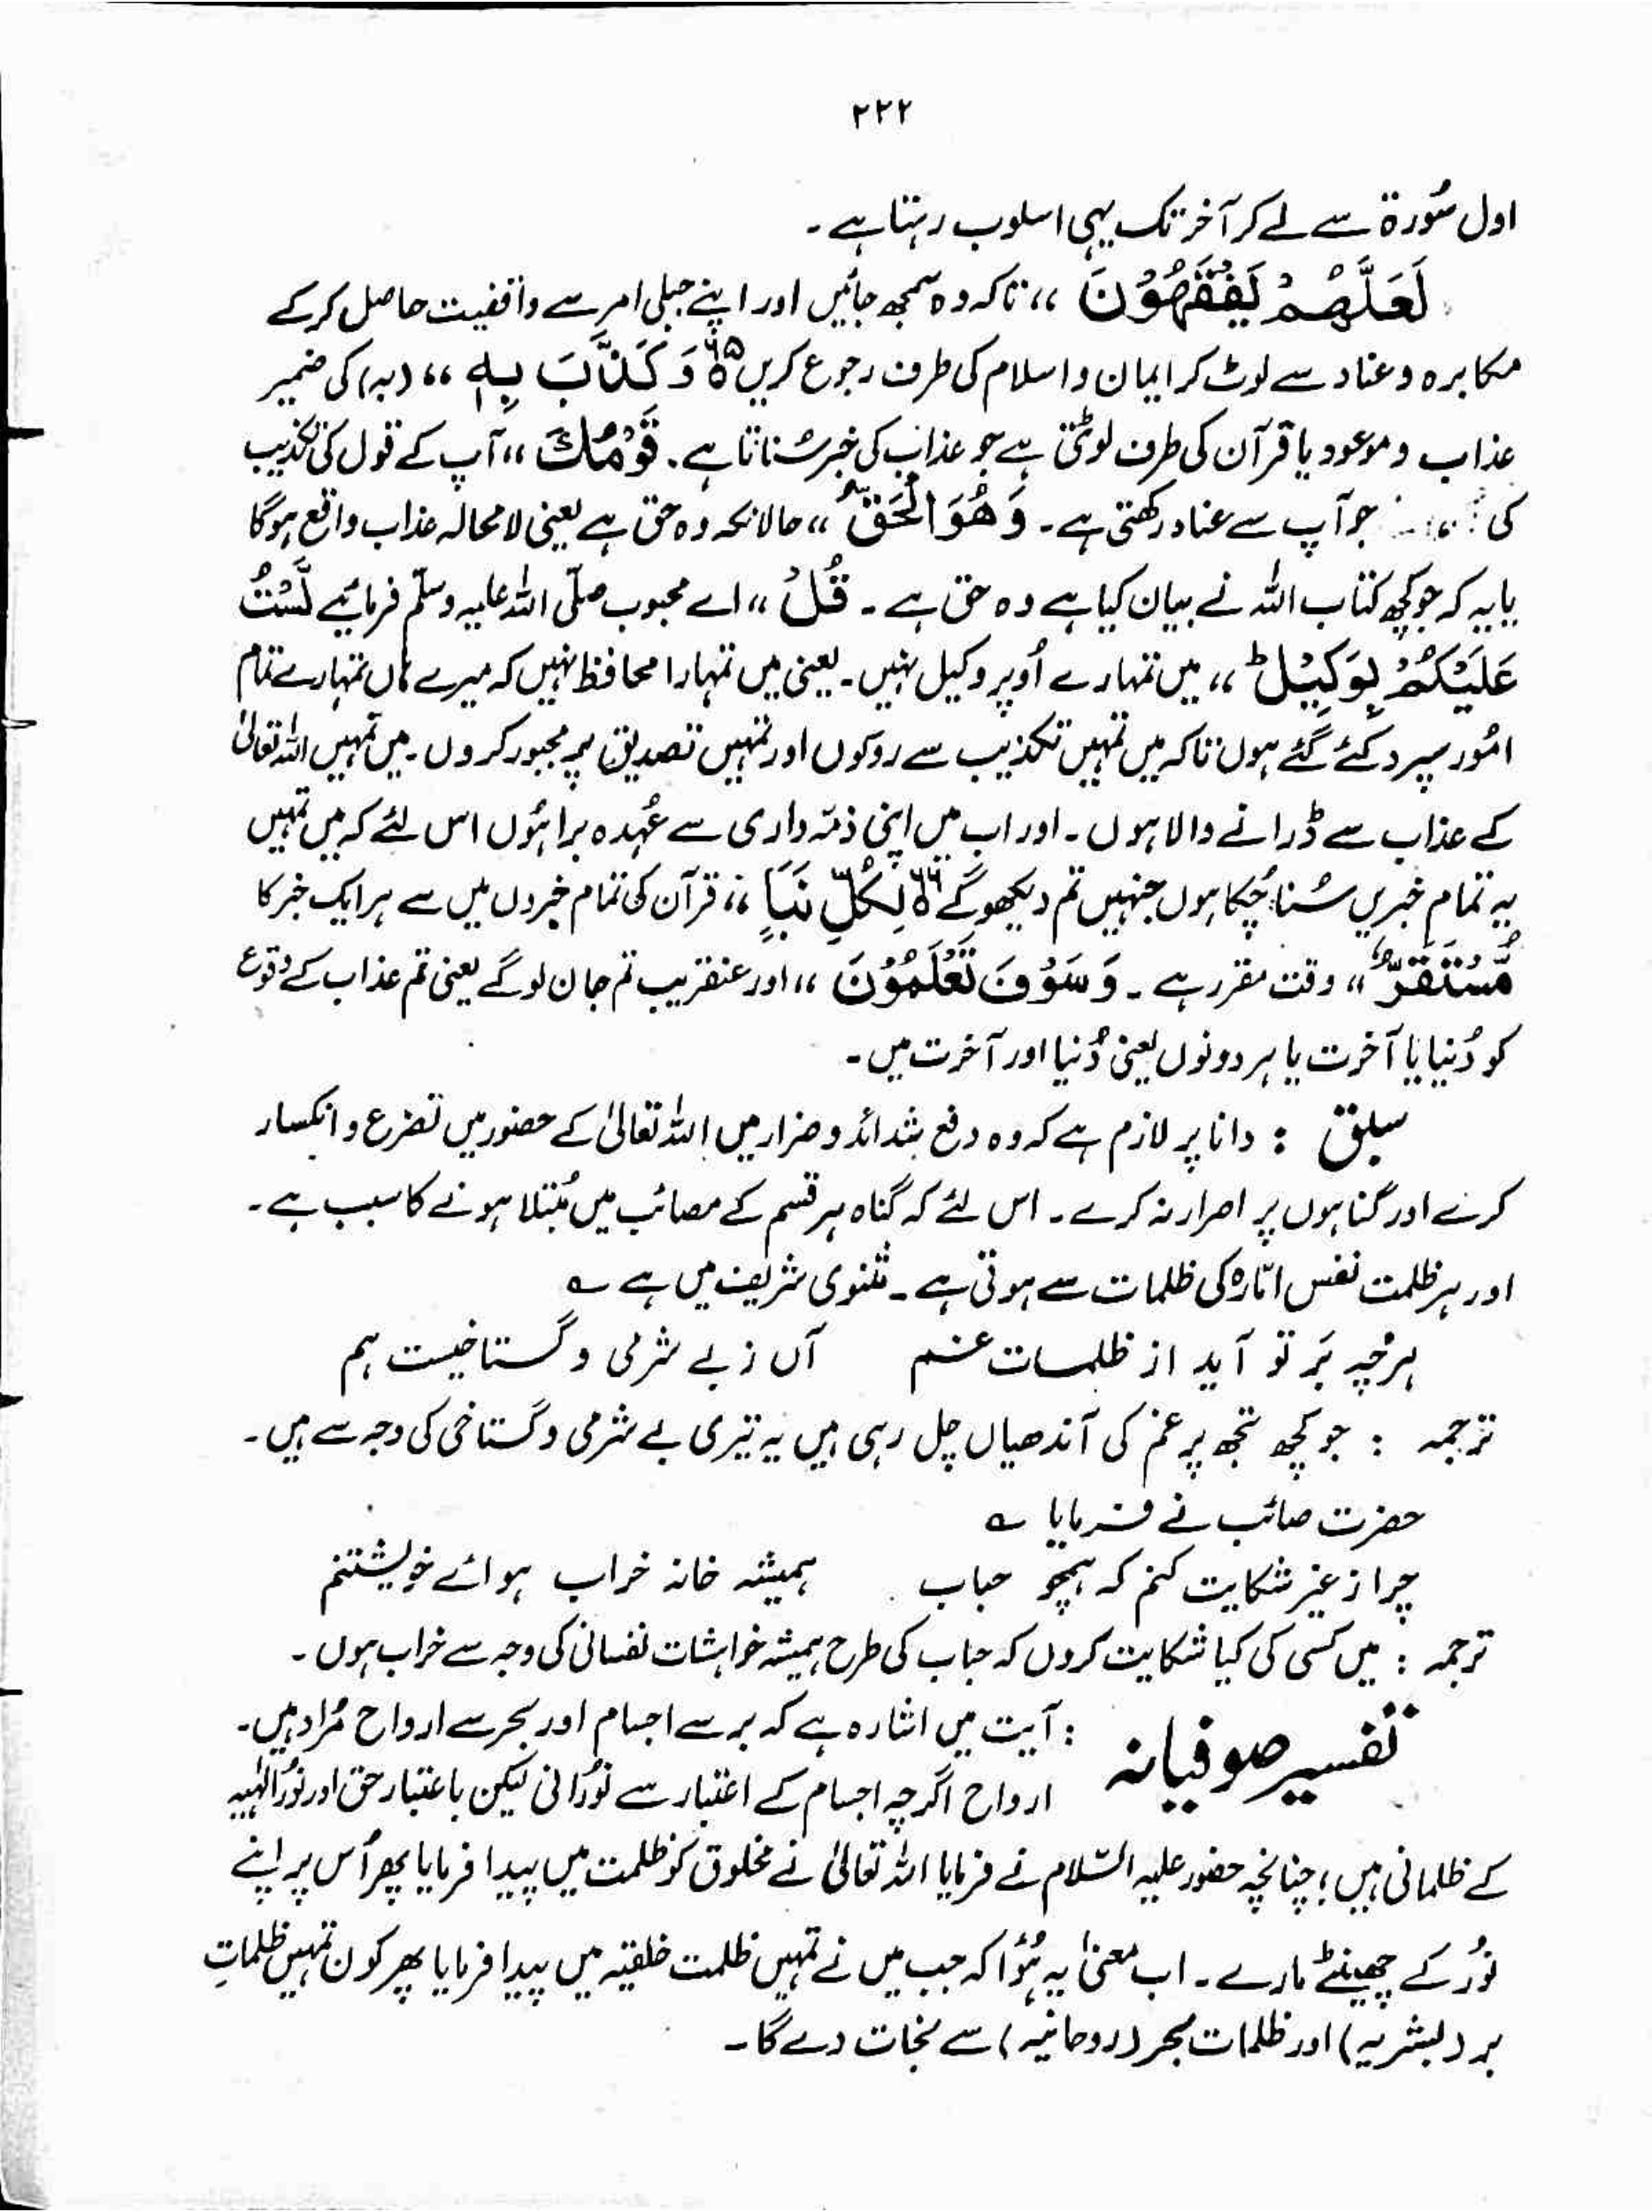 ۲۲۲
اول سُورۃ سے لے کر آخر تک یہی اسلوب رہتا ہے۔
لَعَلَّهُمْ يَفْقَهُوْنَ ،، تاکہ وہ سمجھ جائیں اور اپنے جبلی امر سے واقفیت حاصل کرکے
مکابرہ و عناد سے لوٹ کر ایمان و اسلام کی طرف رجوع کریں ۶۵ وَكَذَّبَ بِهٖ ،، (بہ) کی ضمیر
عذاب و موعود یا قرآن کی طرف لوٹتی ہے جو عذاب کی خبر سُناتا ہے۔ قَوْمُكَ ،، آپ کے قول کی تکذیب
کی جو آپ سے عناد رکھتی ہے۔ وَهُوَ الْحَقُّ ،، حالانکہ وہ حق ہے یعنی لامحالہ عذاب واقع ہوگا
یا یہ کہ جو کچھ کتاب اللہ نے بیان کیا ہے وہ حق ہے۔ قُلْ ،، اے محبوب صلّی اللہ علیہ وسلّم فرمائیے لَّسْتُ
عَلَيْكُمْ بِوَكِيْلٍ ؕ ،، میں تمہارے اُوپر وکیل نہیں۔ یعنی میں تمہارا محافظ نہیں کہ میرے ہاں تمہارے تمام
امُور سپرد کئے گئے ہوں تاکہ میں تمہیں تکذیب سے روکوں اور تمہیں تصدیق پر مجبور کروں۔ میں تمہیں اللہ تعالیٰ
کے عذاب سے ڈرانے والا ہوں۔ اور اب میں اپنی ذمّہ داری سے عُہدہ برا ہُوں اس لئے کہ میں تمہیں
یہ تمام خبریں سُنا چُکا ہوں جنہیں تم دیکھو گے ۶۶ لِكُلِّ نَبَاٍ ،، قرآن کی تمام خبروں میں سے ہر ایک خبر کا
مُّسْتَقَرٌّ ،، وقت مقرر ہے۔ وَسَوْفَ تَعْلَمُوْنَ ،، اور عنقریب تم جان لوگے یعنی تم عذاب کے وقوع
کو دُنیا یا آخرت یا ہر دونوں یعنی دُنیا اور آخرت میں۔
سبق : دانا پر لازم ہے کہ وہ دفع شدائد و ضرار میں اللہ تعالیٰ کے حضور میں تضرع و انکسار
کرے اور گناہوں پر اصرار نہ کرے۔ اس لئے کہ گناہ ہر قسم کے مصائب میں مُبتلا ہونے کا سبب ہے۔
اور ہر ظلمت نفس امّارہ کی ظلمات سے ہوتی ہے۔ مثنوی شریف میں ہے ؎
ہرچہ بَر تو آید از ظلمات غم آں ز بے شرمی و گستاخیست ہم
ترجمہ : جو کچھ تجھ پر غم کی آندھیاں چل رہی ہیں یہ تیری بے شرمی و گستاخی کی وجہ سے ہیں۔
حضرت صائب نے فرمایا ؎
چرا ز غیر شکایت کنم کہ ہمچو حباب ہمیشہ خانہ خراب ہوائے خویشتنم
ترجمہ : میں کسی کی کیا شکایت کروں کہ حباب کی طرح ہمیشہ خواہشات نفسانی کی وجہ سے خراب ہوں۔
تفسیر صوفیانہ : آیت میں اشارہ ہے کہ بر سے اجسام اور بحر سے ارواح مُراد ہیں۔
ارواح اگرچہ اجسام کے اعتبار سے نُورانی لیکن باعتبار حق اور نُور الٰہیہ
کے ظلمانی ہیں؛ چنانچہ حضور علیہ السّلام نے فرمایا اللہ تعالیٰ نے مخلوق کو ظلمت میں پیدا فرمایا پھر اُس پر اپنے
نُور کے چھینٹے مارے۔ اب معنیٰ یہ ہُوا کہ جب میں نے تمہیں ظلمت خلقیّہ میں پیدا فرمایا پھر کون تمہیں ظلماتِ
بر (بشریہ) اور ظلمات بحر (روحانیہ) سے نجات دے گا۔